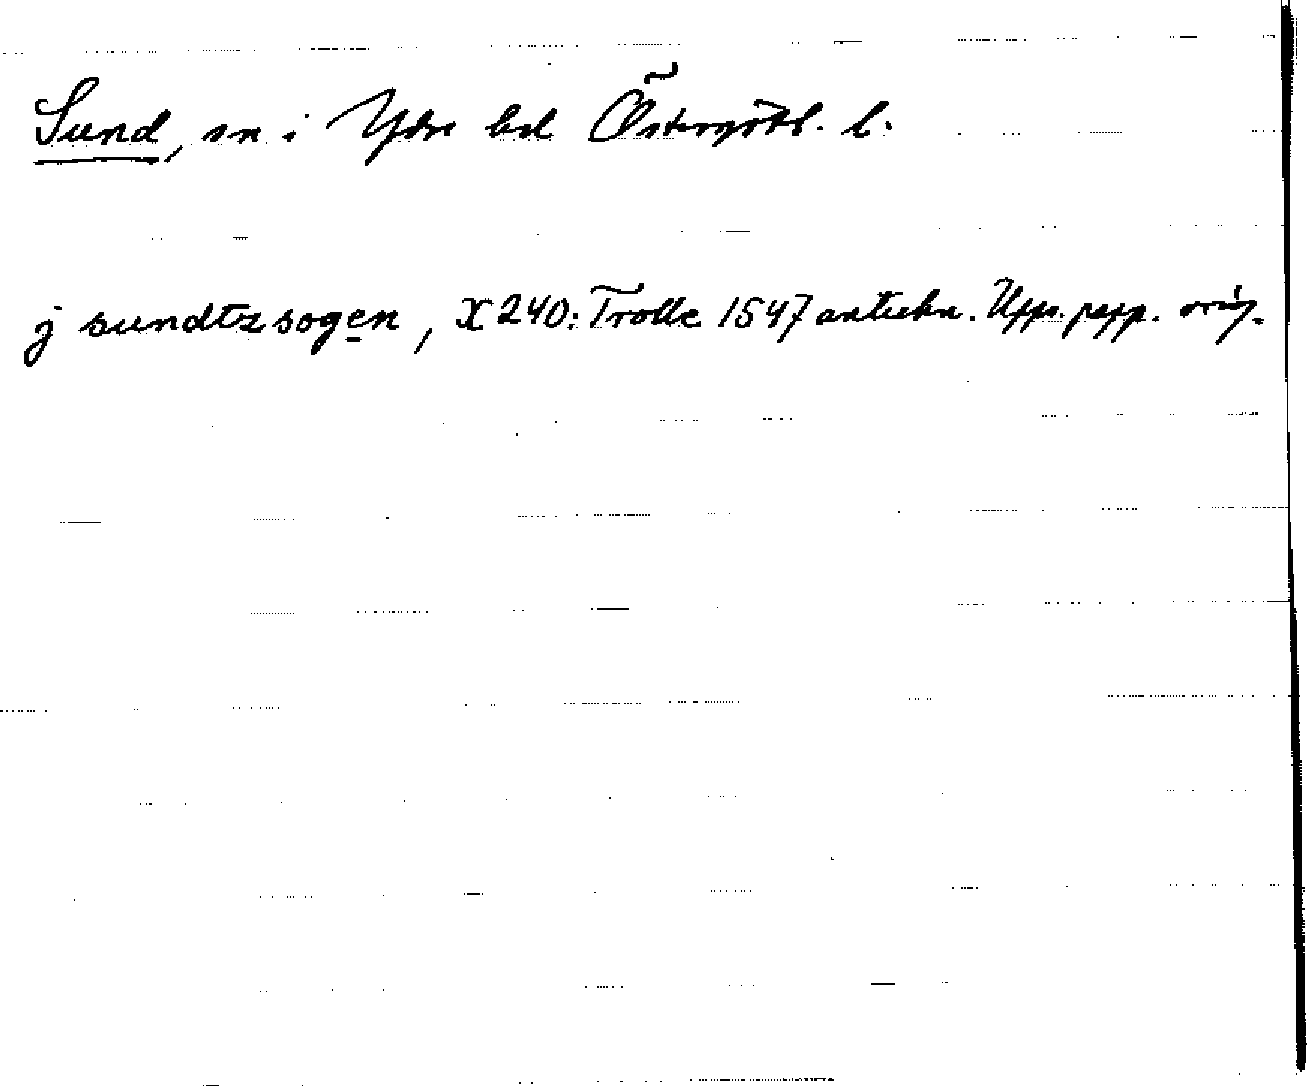 Sund, sn i Ydre hd Östergötl. l.
j sundtzsogen, X 240: Trolle 1547 anteckn. Upps. papp. orig.